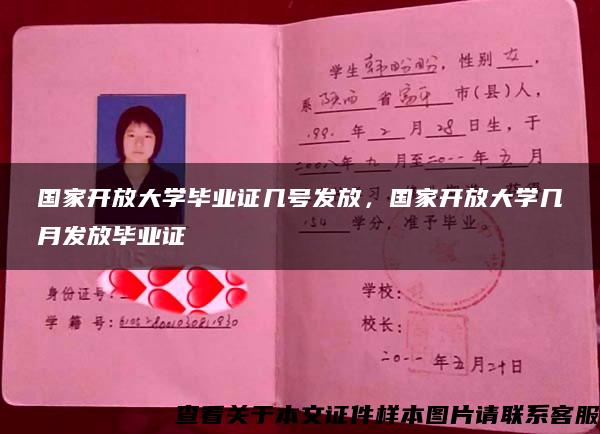 学生韩盼盼，性别女，
系陕西省富平市(县)人，
1991年2月28日生，于
二〇〇八年九月至二〇一一年五月
国家开放大学毕业证几号发放，国家开放大学几
月发放毕业证
154学分，准予毕业。
身份证号：
学籍号：
学校：
校长：
二〇一一年五月二十日
查看关于本文证件样本图片请联系客服